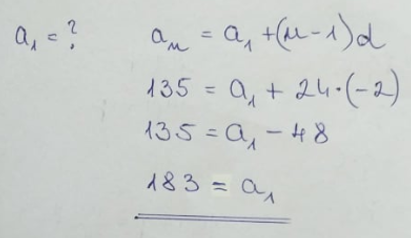 a₁ = ? aₙ = a₁ + (n − 1)d
135 = a₁ + 24·(−2)
135 = a₁ − 48
183 = a₁